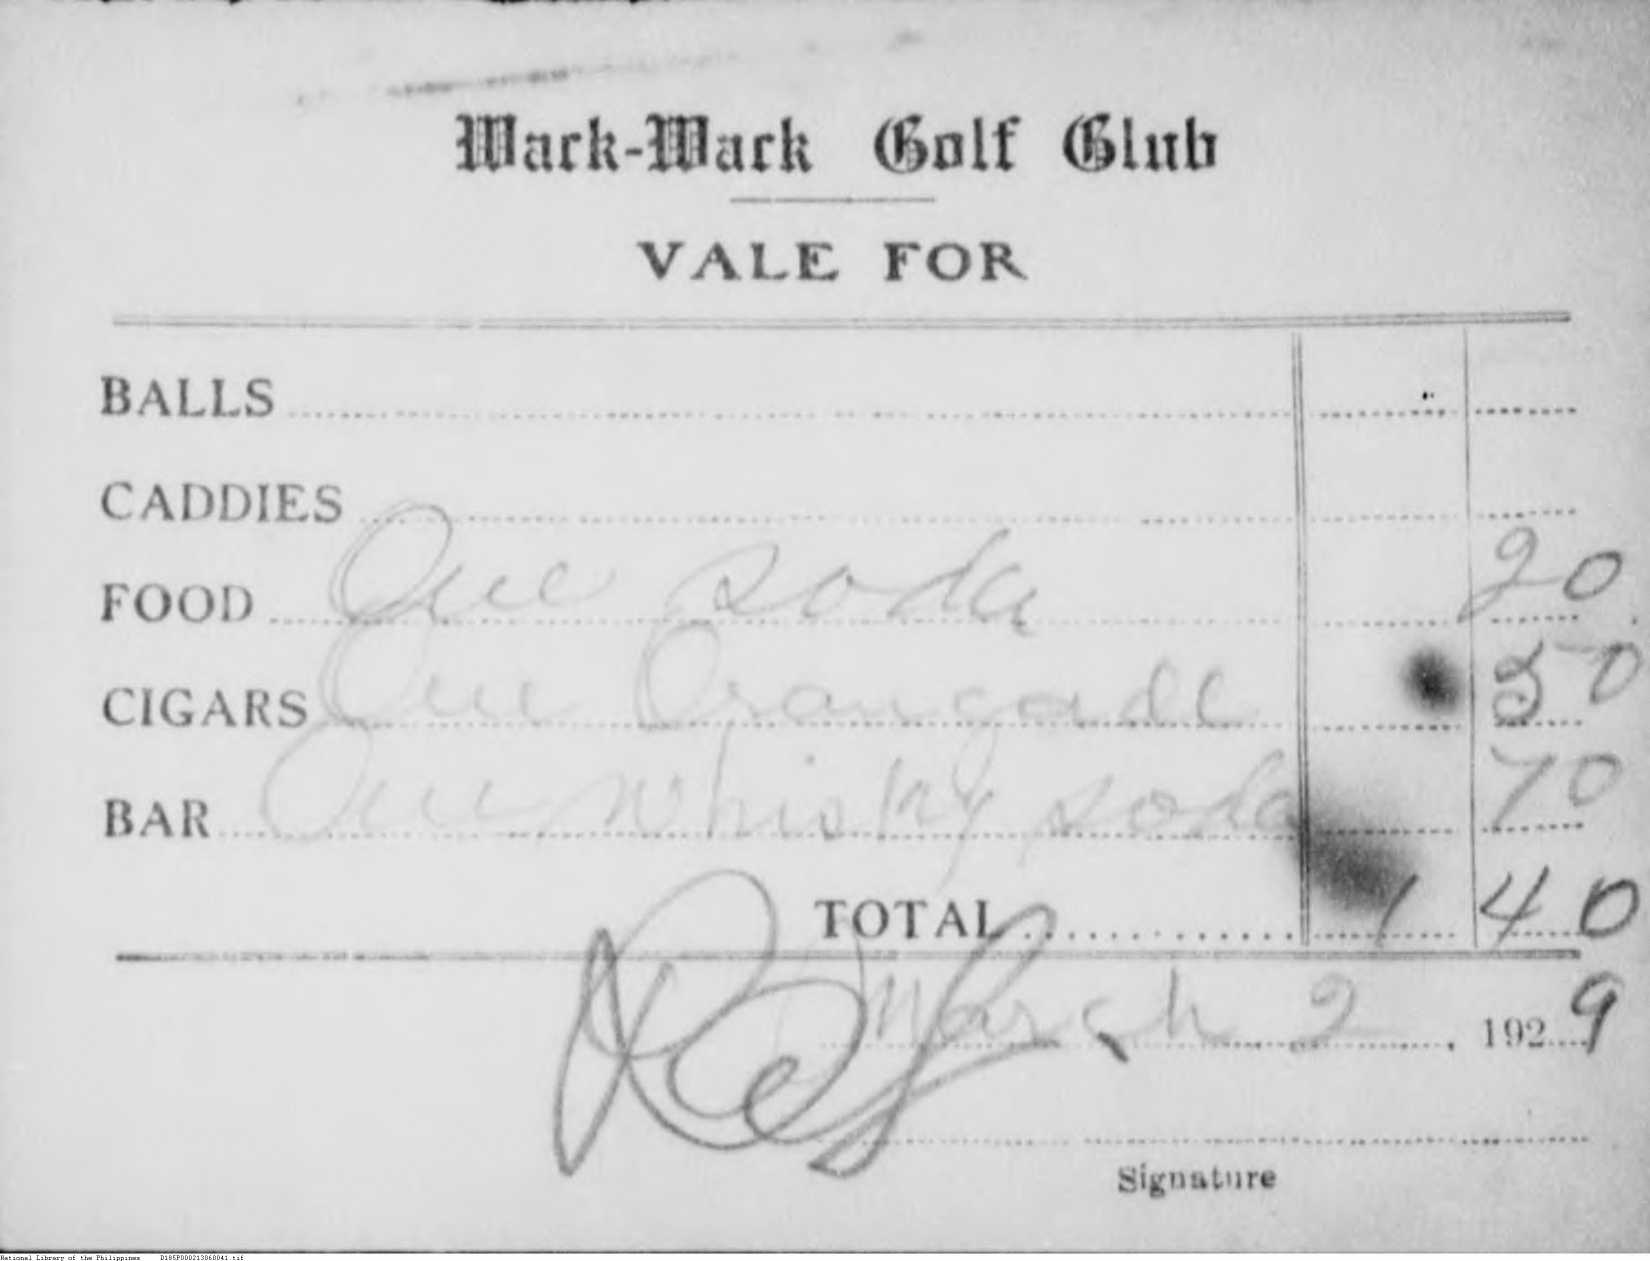 Wack-Wack Golf Club
VALE FOR
BALLS
CADDIES
FOOD One soda 20
CIGARS One Orangade 50
BAR One whisky soda 70
TOTAL 1 40
March 2, 1929
Signature
National Library of the Philippines D185P000213060041.tif